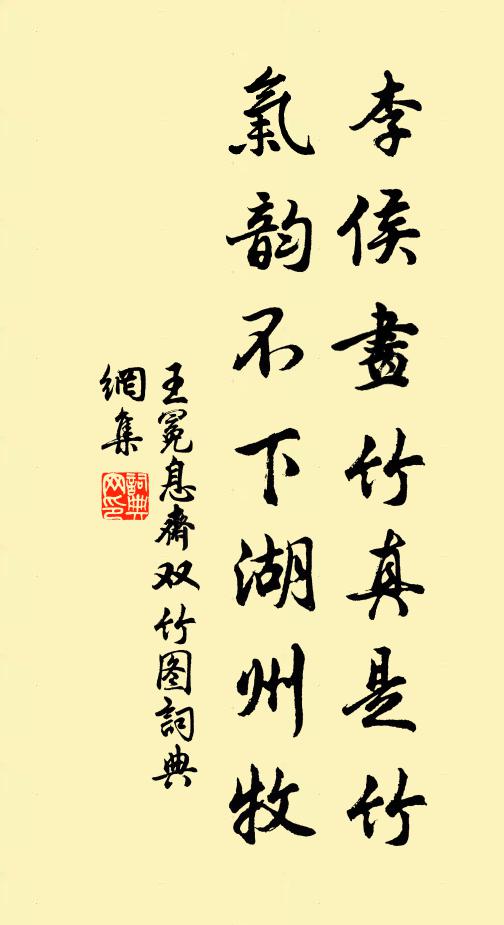 李侯畫竹真是竹
氣韵不下湖州牧
王冕息齋双竹图詞典
網集
詞典
网印